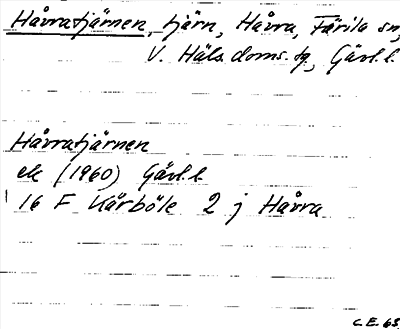 Håvratjärnen, tjärn, Håvra, Färila sn,
V. Häls. doms. tg, Gävl. l.
Håvratjärnen
ek (1960) Gävl. l.
16 F Kårböle 2 j Håvra
C.E. 63